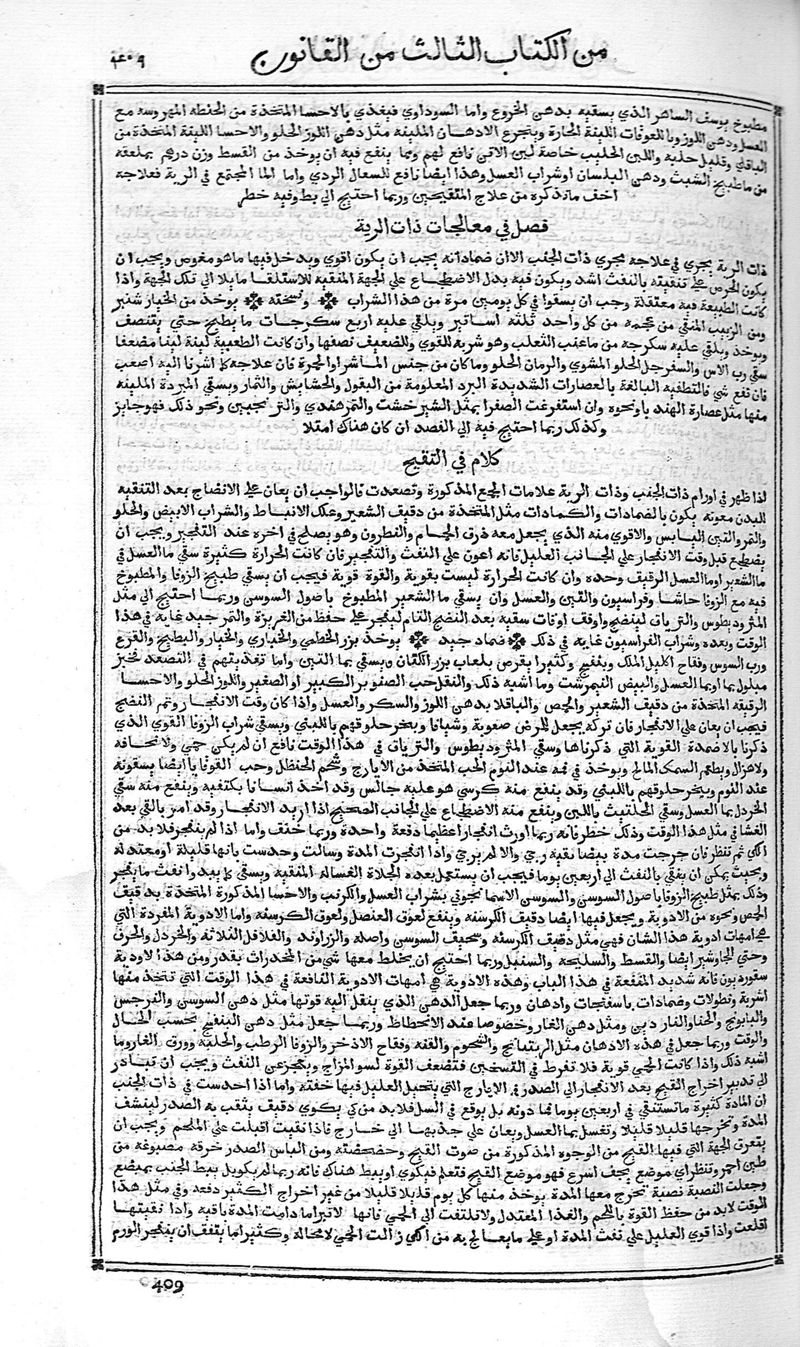 من الكتاب الثالث من القانون
٤٠٩
مطبوخ يوسف الساهر الذي يسقيه بدهن الخروع واما السوداوي فيغذي بالاحسا المتخذة من الحنطه المهروسه مع
العسل ودهن اللوز وباللعوقات اللينة الحارة ويتجرع الادهان الملينه مثل دهن اللوز الحلو والاحسا اللينة المتخذة من
الباقلي وقليل حلبه واللبن الحليب خاصة لبن الاتن نافع لهم ومما ينفع فيه ان يوخذ من القسط وزن درهم بملعقه
من ما طبيخ الشبث ودهن البلسان او شراب العسل وهذا ايضا نافع للسعال الردي واما الما المجتمع في الرية فعلاجه
اخف ما نذكره من علاج المتقيحين وربما احتيج الي بط وفيه خطر
فصل في معالجات ذات الرية
ذات الرية يجري في علاجه مجري ذات الجنب الا ان ضماداته يجب ان يكون اقوي ويدخل فيها ما هو مغوص ويجب ان
يكون الحرص علي تنقيته بالنفث اشد ويكون فيه بدل الاضطجاع علي الجهة المنقيه للاستلقا مايلا الي تلك الجهة واذا
كانت الطبيعة فيه معتقلة وجب ان يسقوا في كل يومين مرة من هذا الشراب ونسخته يوخذ من الخيار شنبر
ومن الزبيب المنقي من عجمه من كل واحد ثلثه اساتير ويلقي عليه اربع سكرجات ما يطبخ حتي ينتصف
ويوخذ ويلقي عليه سكرجه من ماعنب الثعلب وهو شربة للقوي وللضعيف نصفها وان كانت الطبيعة لينة لينا مضعفا
سقي رب الاس والسفرجل الحلو المشوي والرمان الحلو وما كان من جنس الماشرا والحمرة فان علاجه كما اشرنا اليه اصعب
فان نفع شي فالتطفيه البالغة بالعصارات الشديدة البرد المعلومة من البقول والحشايش والثمار ويسقي المبردة الملينه
منها مثل عصارة الهندبا ونحوه وان استفرغت الصفرا بمثل الشيرخشت والتمر هندي والترنجبين ونحو ذلك فهو جايز
وكذلك ربما احتيج فيه الي الفصد ان كان هناك امتلا
كلام في التقيح
اذا ظهر في اورام ذات الجنب وذات الرية علامات الجمع المذكورة وتصعدت فالواجب ان يعان علي الانضاج بعد التنقيه
للبدن معونه يكون بالضمادات والكمادات مثل المتخذة من دقيق الشعير وعلك الانباط والشراب الابيض والحلو
والتمر والتين اليابس والاقوي منه الذي يجعل معه ذرق الحمام والنطرون وهو يصلح في اخره عند التفجير ويجب ان
يضطجع قبل وقت الانفجار علي الجانب العليل فانه اعون علي النضث والتفجير فان كانت الحرارة كثيرة سقي ما العسل في
ما الشعير او ما العسل الرقيف وحده وان كانت الحرارة ليست بقوية والقوة قوية فيجب ان يسقي طبيخ الزوفا والمطبوخ
فيه مع الزوفا حاشا وفراسيون والتين والعسل وان يسقي ما الشعير المطبوخ باصول السوسن وربما احتيج الي مثل
المثرودبطوس والترياق لينضج واوقف اوقات سقيه بعد النضج التام لينجر علي حفظ من الغريزة والتمر جيد غاية في هذا
الوقت وبعده وشراب الفراسيون غايه في ذلك ضماد جيد يوخذ بزر الخطمي والخباري والخيار والبطيخ والقرع
ورب السوس وفقاح اكليل الملك وبنفسج وكثيرا يقرص بلعاب بزر الكتان ويسقي بما التين واما تغذيتهم في التصعد فخبز
مبلول بما او بما العسل والبيض النيمرشت وما اشبه ذلك والنقل حب الصنوبر الكبير او الصغير واللوز الحلو والاحسا
الرقيقه المتخذة من دقيق الشعير والحمص والباقلا بدهن اللوز والسكر والعسل واذا كان وقت الانفجار وتم النضج
فيجب ان يعان علي الانفجار فان تركه يجعل للمرض صعوبة وشباتا ويبخر حلوقهم باللبني ويسقي شراب الزوفا القوي الذي
ذكرنا بالاضمدة القوية التي ذكرناها وسقي المثرودبطوس والترياق في هذا الوقت نافع ان لم يكن حمي ولا نحافه
ولا هزال ويطعم السمك المالح ويوخذ في فمه عند النوم الحب المتخذ من الايارج وشحم الحنظل وحب القوقايا ايضا يسقونه
عند النوم ويبخر حلوقهم باللبني وقد ينفع منه كرسي هو عليه جالس وقد اخذ انسان بكتفيه وينفع منه سقي
الخردل بما العسل وسقي الحلتيث باللبن وينفع منه الاضطجاع علي الجانب الصحيح اذا اريد الانفجار وقد امر بالقي بعد
العشا في مثل هذا الوقت وذلك خطر فانه ربما اورث انفجارا عظيما دفعة واحدة وربما خنف واما اذا لم ينفجر فلا بد من
الكي ثم تنظر فان خرجت مدة بيضا نقيه رجي والا لم يرج واذا انفجرت المدة وسالت وحدست بانها قليلة او معتدله
وبحيث يمكن ان ينقي بالنفث الي اربعين يوما فيجب ان يستعمل بعده الجلاة الغسالة المنقيه ويسقي كما يبدوا نفث ما ينفجر
وذلك بمثل طبيخ الزوفا باصول السوسن والسوسن الاسمانجوني بشراب العسل والكرنب والاحسا المذكورة المتخذة بدقيف
الحمص ونحوه من الادوية ويجعل فيها ايضا دقيق الكرسنه وينفع لعوق العنصل ولعوق الكرسنه واما الادوية المفردة التي
هي امهات ادوية هذا الشان فهي مثل دقيق الكرسنه وسحيف السوسن واصله والزراوند والفلافل الثلاثه والخردل والحرف
وحتي الجاوشير ايضا والقسط والسليخه والسنبل وربما احتيج ان يخلط معها شي من المخدرات بقدر ومن هذا لادوية
سقورديون فانه شديد المنفعة في هذا الباب وهذه الادوية هي امهات الادوية النافعة في هذا الوقت التي تتخذ منها
اشربة ونطولات وضمادات باسفنجات وادهان وربما جعل الدهن الذي ينقل اليه قوتها مثل دهن السوسن والنرجس
والبابونج والحنا والناردين ومثل دهن الغار وخصوصا عند الانحطاط وربما جعل مثل دهن البنفسج بحسب الحال
والوقت وربما جعل في هذه الادهان مثل الريتيانج والشحوم والقنه وفقاح الاذخر والزوفا الرطب والحلبه وورق الغار وما
اشبه ذلك واذا كانت الحمي قوية فلا تفرط في التسخين فتضعف القوة لسو المزاج ويعجز عن النفث ويجب ان تبادر
الي تدبير اخراج القيح بعد الانفجار الي الصدر في الايارج التي يتخيل العليل فيها خفته واما اذا احدست في ذات الجنب
ان المادة كثيرة ما تستنقي في اربعين يوما فما دونه بل يوقع في السل فلا بد من كي بكوي دقيف يثقب به الصدر لينشف
المدة ونخرجها قليلا قليلا وتغسل بما العسل ويعان علي جذبها الي خارج فاذا نقيت اقبلت علي الملحم ويجب ان
يتعرف الجهة التي فيها القيح من الوجوه المذكورة من صوت القيح وخضخضته ومن الباس الصدر خرقه مصبوغه من
طين احمر وتنظر اي موضع يجف اسرع فهو موضع القيح فتعلم فيكوي او يبط هناك فانه ربما لم يكوي بل يبط الجنب بمبضع
وجعلت النصبة نصبة تخرج معها المدة يوخذ منها كل يوم قليلا قليلا من غير اخراج الكثير دفعه وفي مثل هذا
الوقت لا بد من حفظ القوة باللحم والغذا المعتدل ولا تلتفت الي الحمي فانها لا تبرا ما دامت المدة باقيه واذا نقيتها
اقلعت واذا قوي العليل علي نفث المدة او علي ما يعالج به من الكي زالت الحمي لا محاله وكثيرا ما يتفق ان ينفجر الورم
409